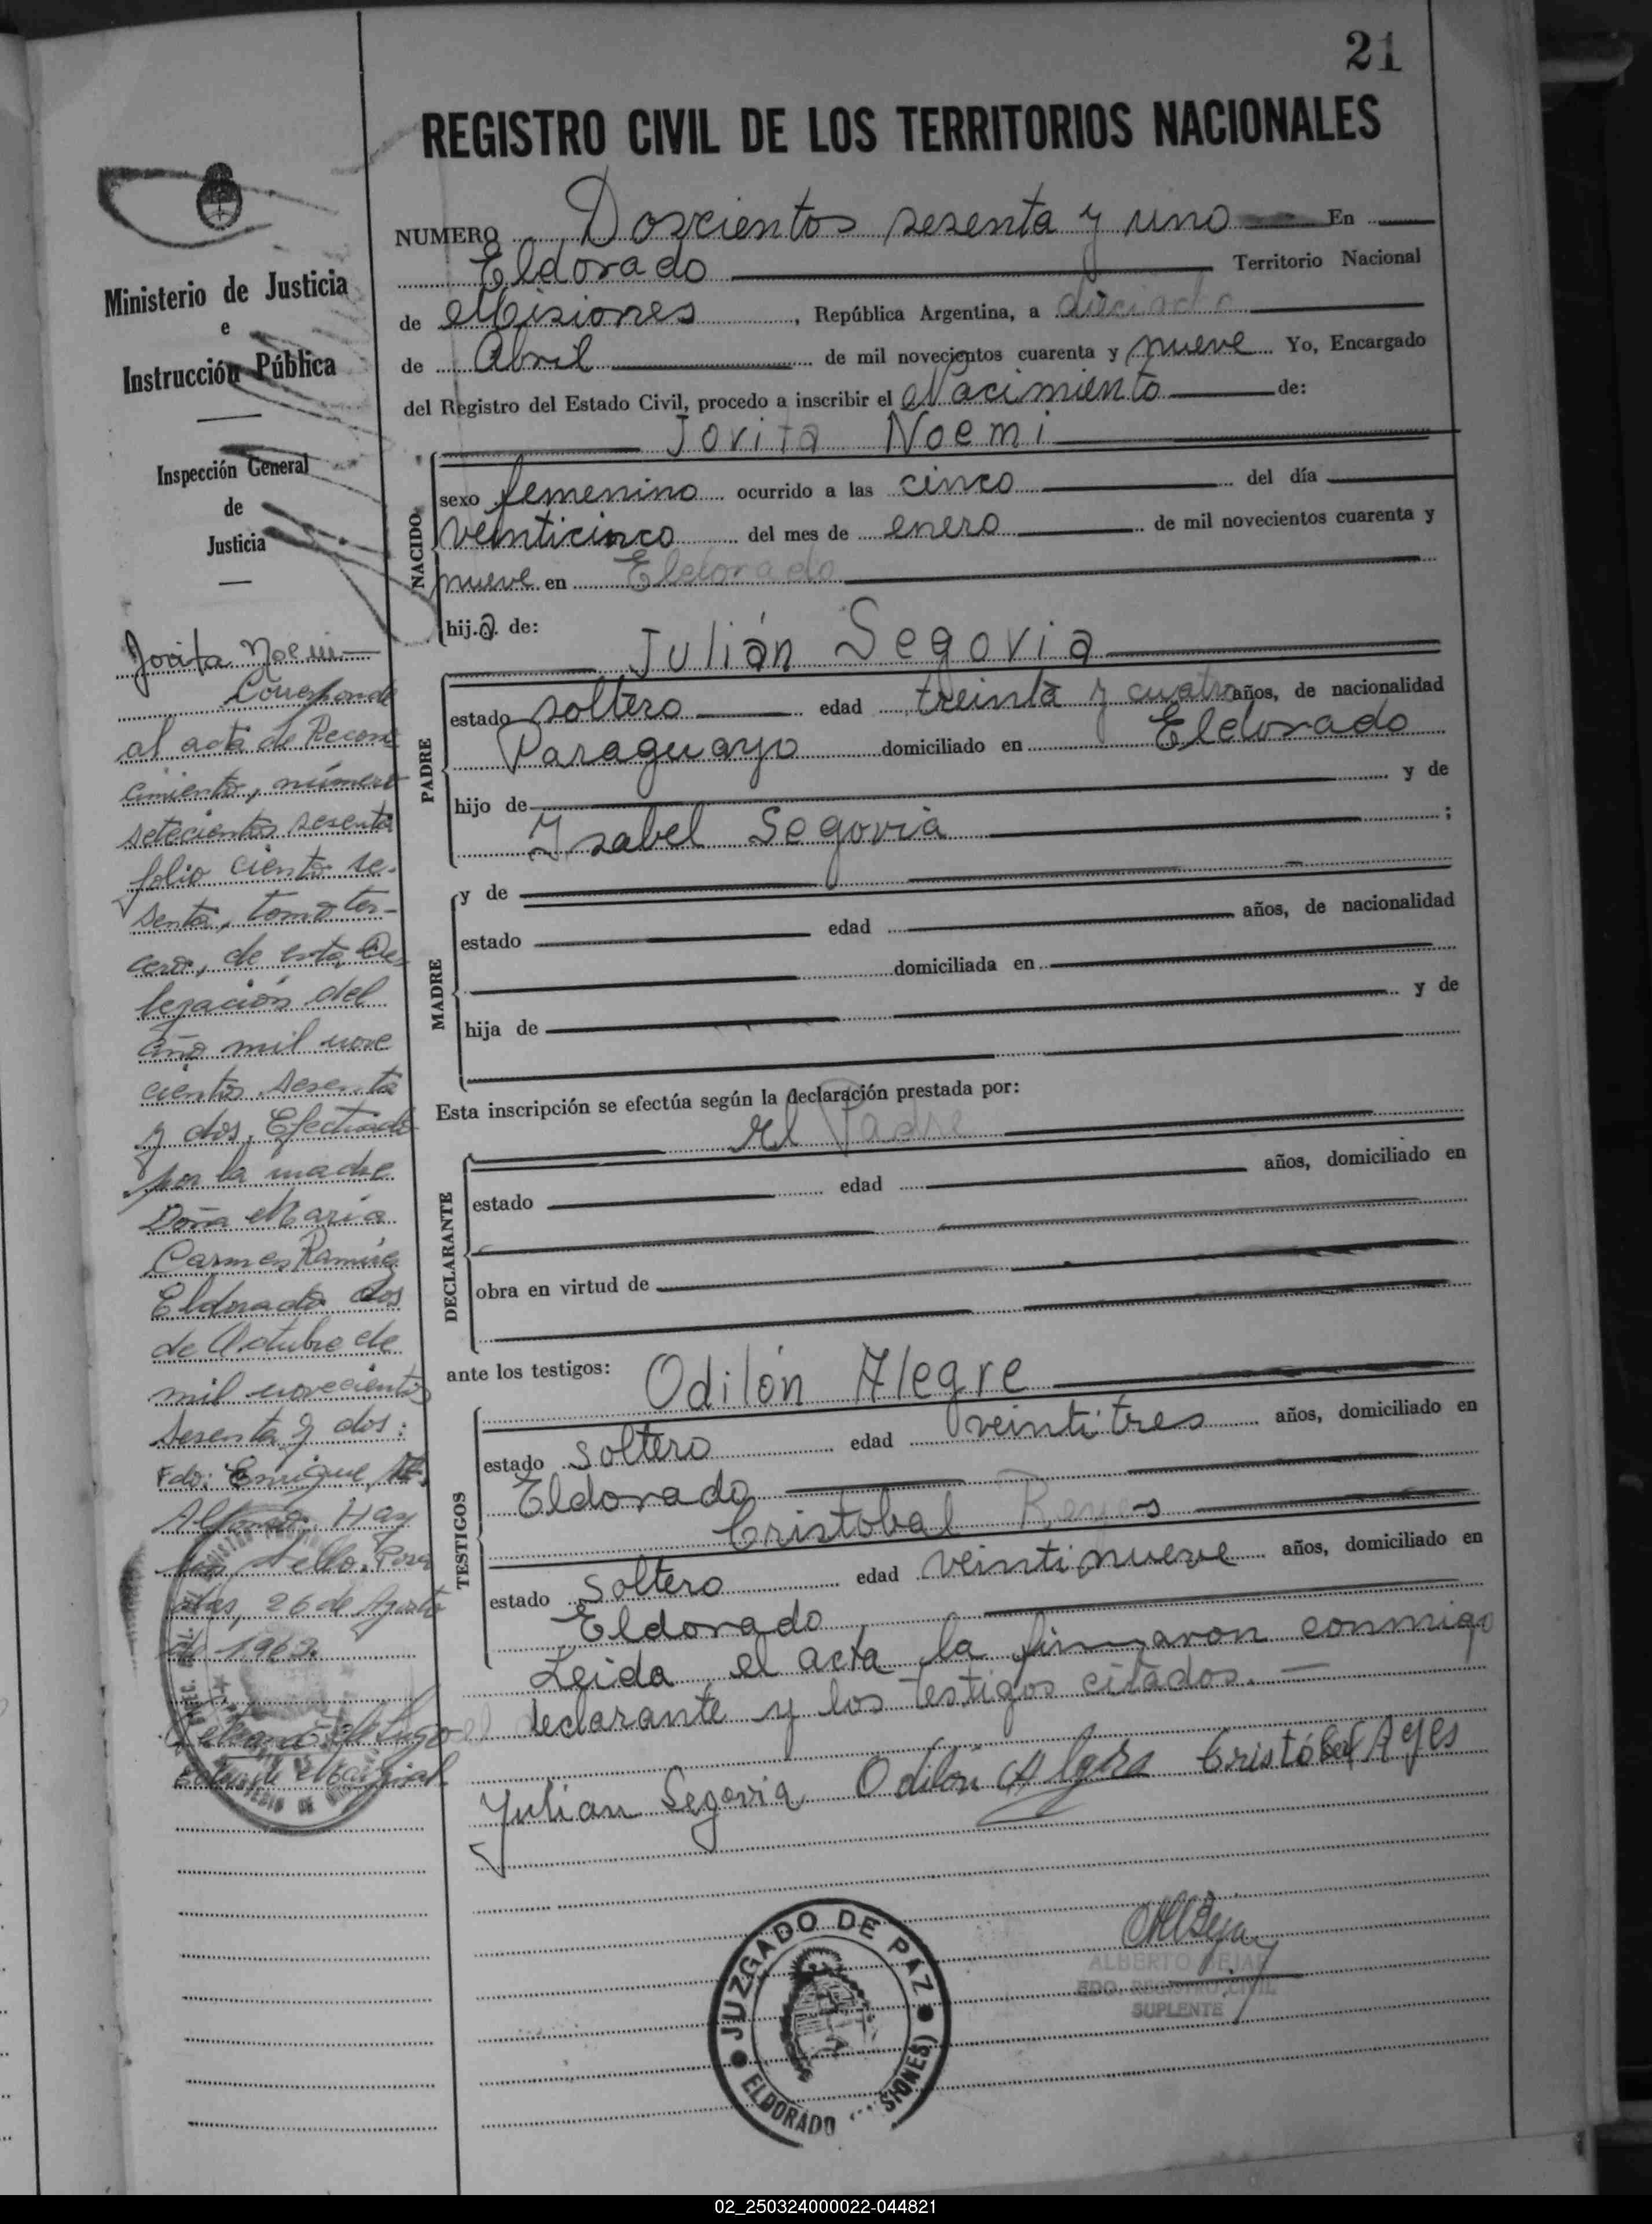 21
REGISTRO CIVIL DE LOS TERRITORIOS NACIONALES
NUMERO Doscientos sesenta y uno En
Eldorado Territorio Nacional
de Misiones, República Argentina, a dieciocho
de Abril de mil novecientos cuarenta y nueve Yo, Encargado
del Registro del Estado Civil, procedo a inscribir el Nacimiento de:
Jovita Noemi
NACIDO
sexo femenino ocurrido a las cinco del día
veinticinco del mes de enero de mil novecientos cuarenta y
nueve en Eldorado
hija de:
Julián Segovia
PADRE
estado soltero edad treinta y cuatro años, de nacionalidad
Paraguayo domiciliado en Eldorado
hijo de y de
Ysabel Segovia ;
MADRE
y de
estado edad años, de nacionalidad
domiciliada en
hija de y de
Esta inscripción se efectúa según la declaración prestada por:
el Padre
DECLARANTE
estado edad años, domiciliado en
obra en virtud de
ante los testigos: Odilón Alegre
TESTIGOS
estado soltero edad veintitres años, domiciliado en
Eldorado
Cristobal Reyes
estado soltero edad veintinueve años, domiciliado en
Eldorado
Leida el acta la firmaron conmigo
el declarante y los testigos citados.—
Julian Segovia Odilon Cristóbal
JUZGADO DE PAZ
ELDORADO SIONES)
ALBERTO BEJAR
EDO. REGISTRO CIVIL
SUPLENTE
Ministerio de Justicia
e
Instrucción Pública
Inspección General
de
Justicia
Jovita Noemi
Corresponde
al acta de Recono
cimiento, número
setecientos sesenta
folio ciento se-
senta, tomo ter-
cero, de esta De-
legación del
año mil nove
cientos sesenta
y dos, Efectuado
por la madre
Doña Maria
Carmen Ramirez
Eldorado dos
de Octubre de
mil novecientos
sesenta y dos:
Fdo: Enrique
Alfonso. Hay
un sello. Posa
das, 26 de Agosto
de 1963.
02_250324000022-044821